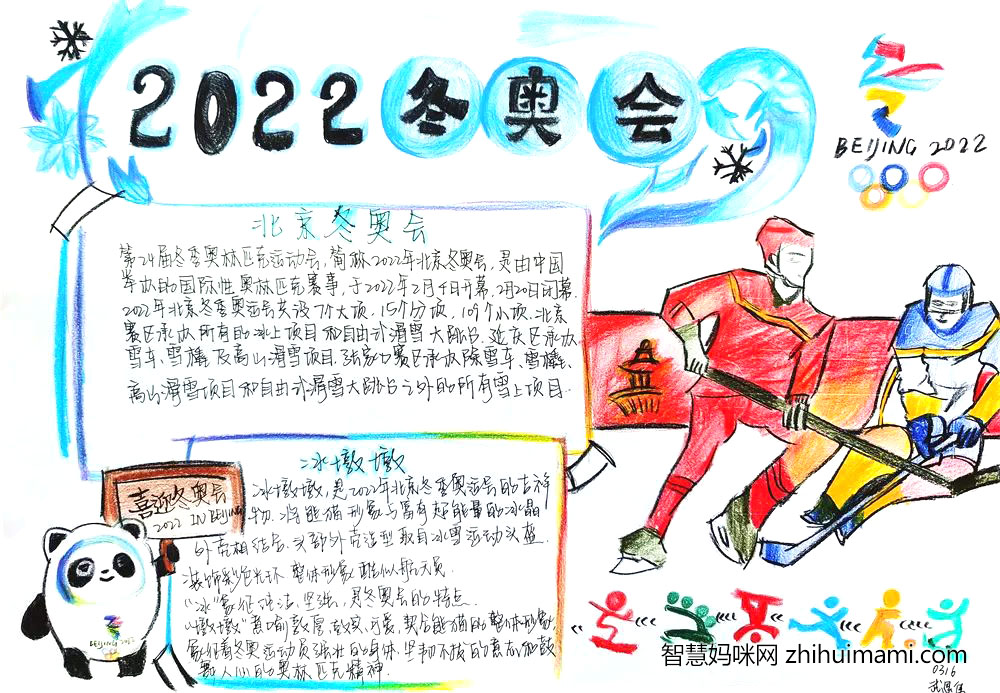 2022冬奥会
BEIJING 2022
北京冬奥会
第24届冬季奥林匹克运动会,简称2022年北京冬奥会,是由中国
举办的国际性奥林匹克赛事,于2022年2月4日开幕,2月20日闭幕.
2022年北京冬季奥运会共设7个大项,15个分项,109个小项.北京
赛区承办所有的冰上项目和自由式滑雪大跳台.延庆区承办
雪车、雪橇及高山滑雪项目.张家口赛区承办除雪车、雪橇、
高山滑雪项目和自由式滑雪大跳台之外的所有雪上项目.
冰墩墩
喜迎冬奥会
2022 IN BEIJING
冰墩墩,是2022年北京冬季奥运会的吉祥
物.将熊猫形象与富有超能量的冰晶
外壳相结合.头部外壳造型取自冰雪运动头盔.
装饰彩色光环 整体形象酷似航天员.
“冰”象征纯洁、坚强,是冬奥会的特点.
“墩墩”意喻敦厚,敦实,可爱,契合熊猫的整体形象,
象征着冬奥运动员强壮的身体.坚韧不拔的意志和鼓
舞人心的奥林匹克精神.
BEIJING
智慧妈咪网 zhihuimami.com
0316